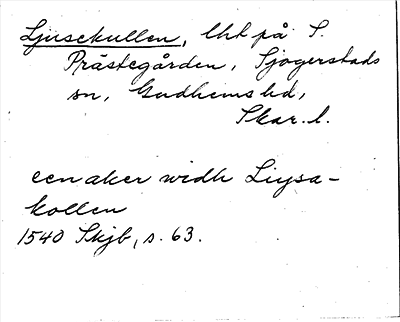 Ljusekullen, lht på S.
Prästegården, Sjogerstads
sn, Gudhems hd,
Skar. l.
een aker widh Liysa-
kollen
1540 Skjb, s. 63.